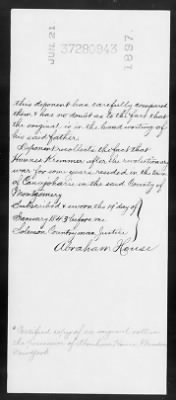 JUN. 21
37280943
1897.
this deponent has carefully compared
them & has no doubt as to the fact that
the original is in the hand writing of
his said father.
Deponent recollects the fact that
after the revolutionary
war for some years resided in the town
of Canajoharie in the said County of
Montgomery
Subscribed & sworn the 19 day of
January 1843 before me
Solomon justice
Abraham House
Certified copy of an original roll in
the possession of Abraham House